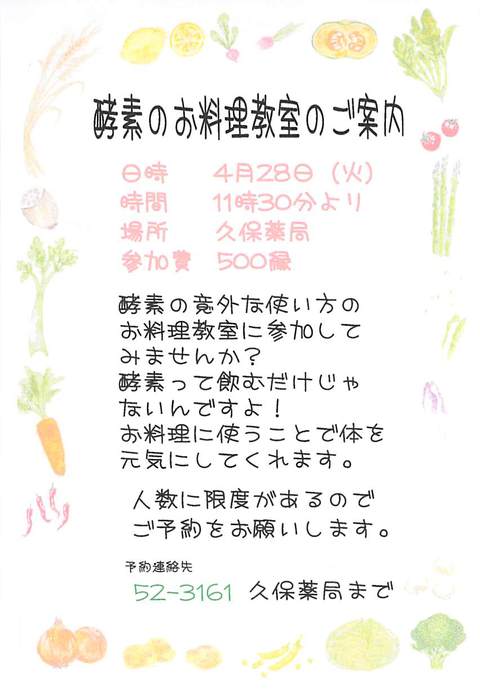 酵素のお料理教室のご案内
日時 4月28日（火）
時間 11時30分より
場所 久保薬局
参加費 500縁
酵素の意外な使い方の
お料理教室に参加して
みませんか？
酵素って飲むだけじゃ
ないんですよ！
お料理に使うことで体を
元気にしてくれます。
人数に限度があるので
ご予約をお願いします。
予約連絡先
52-3161 久保薬局まで